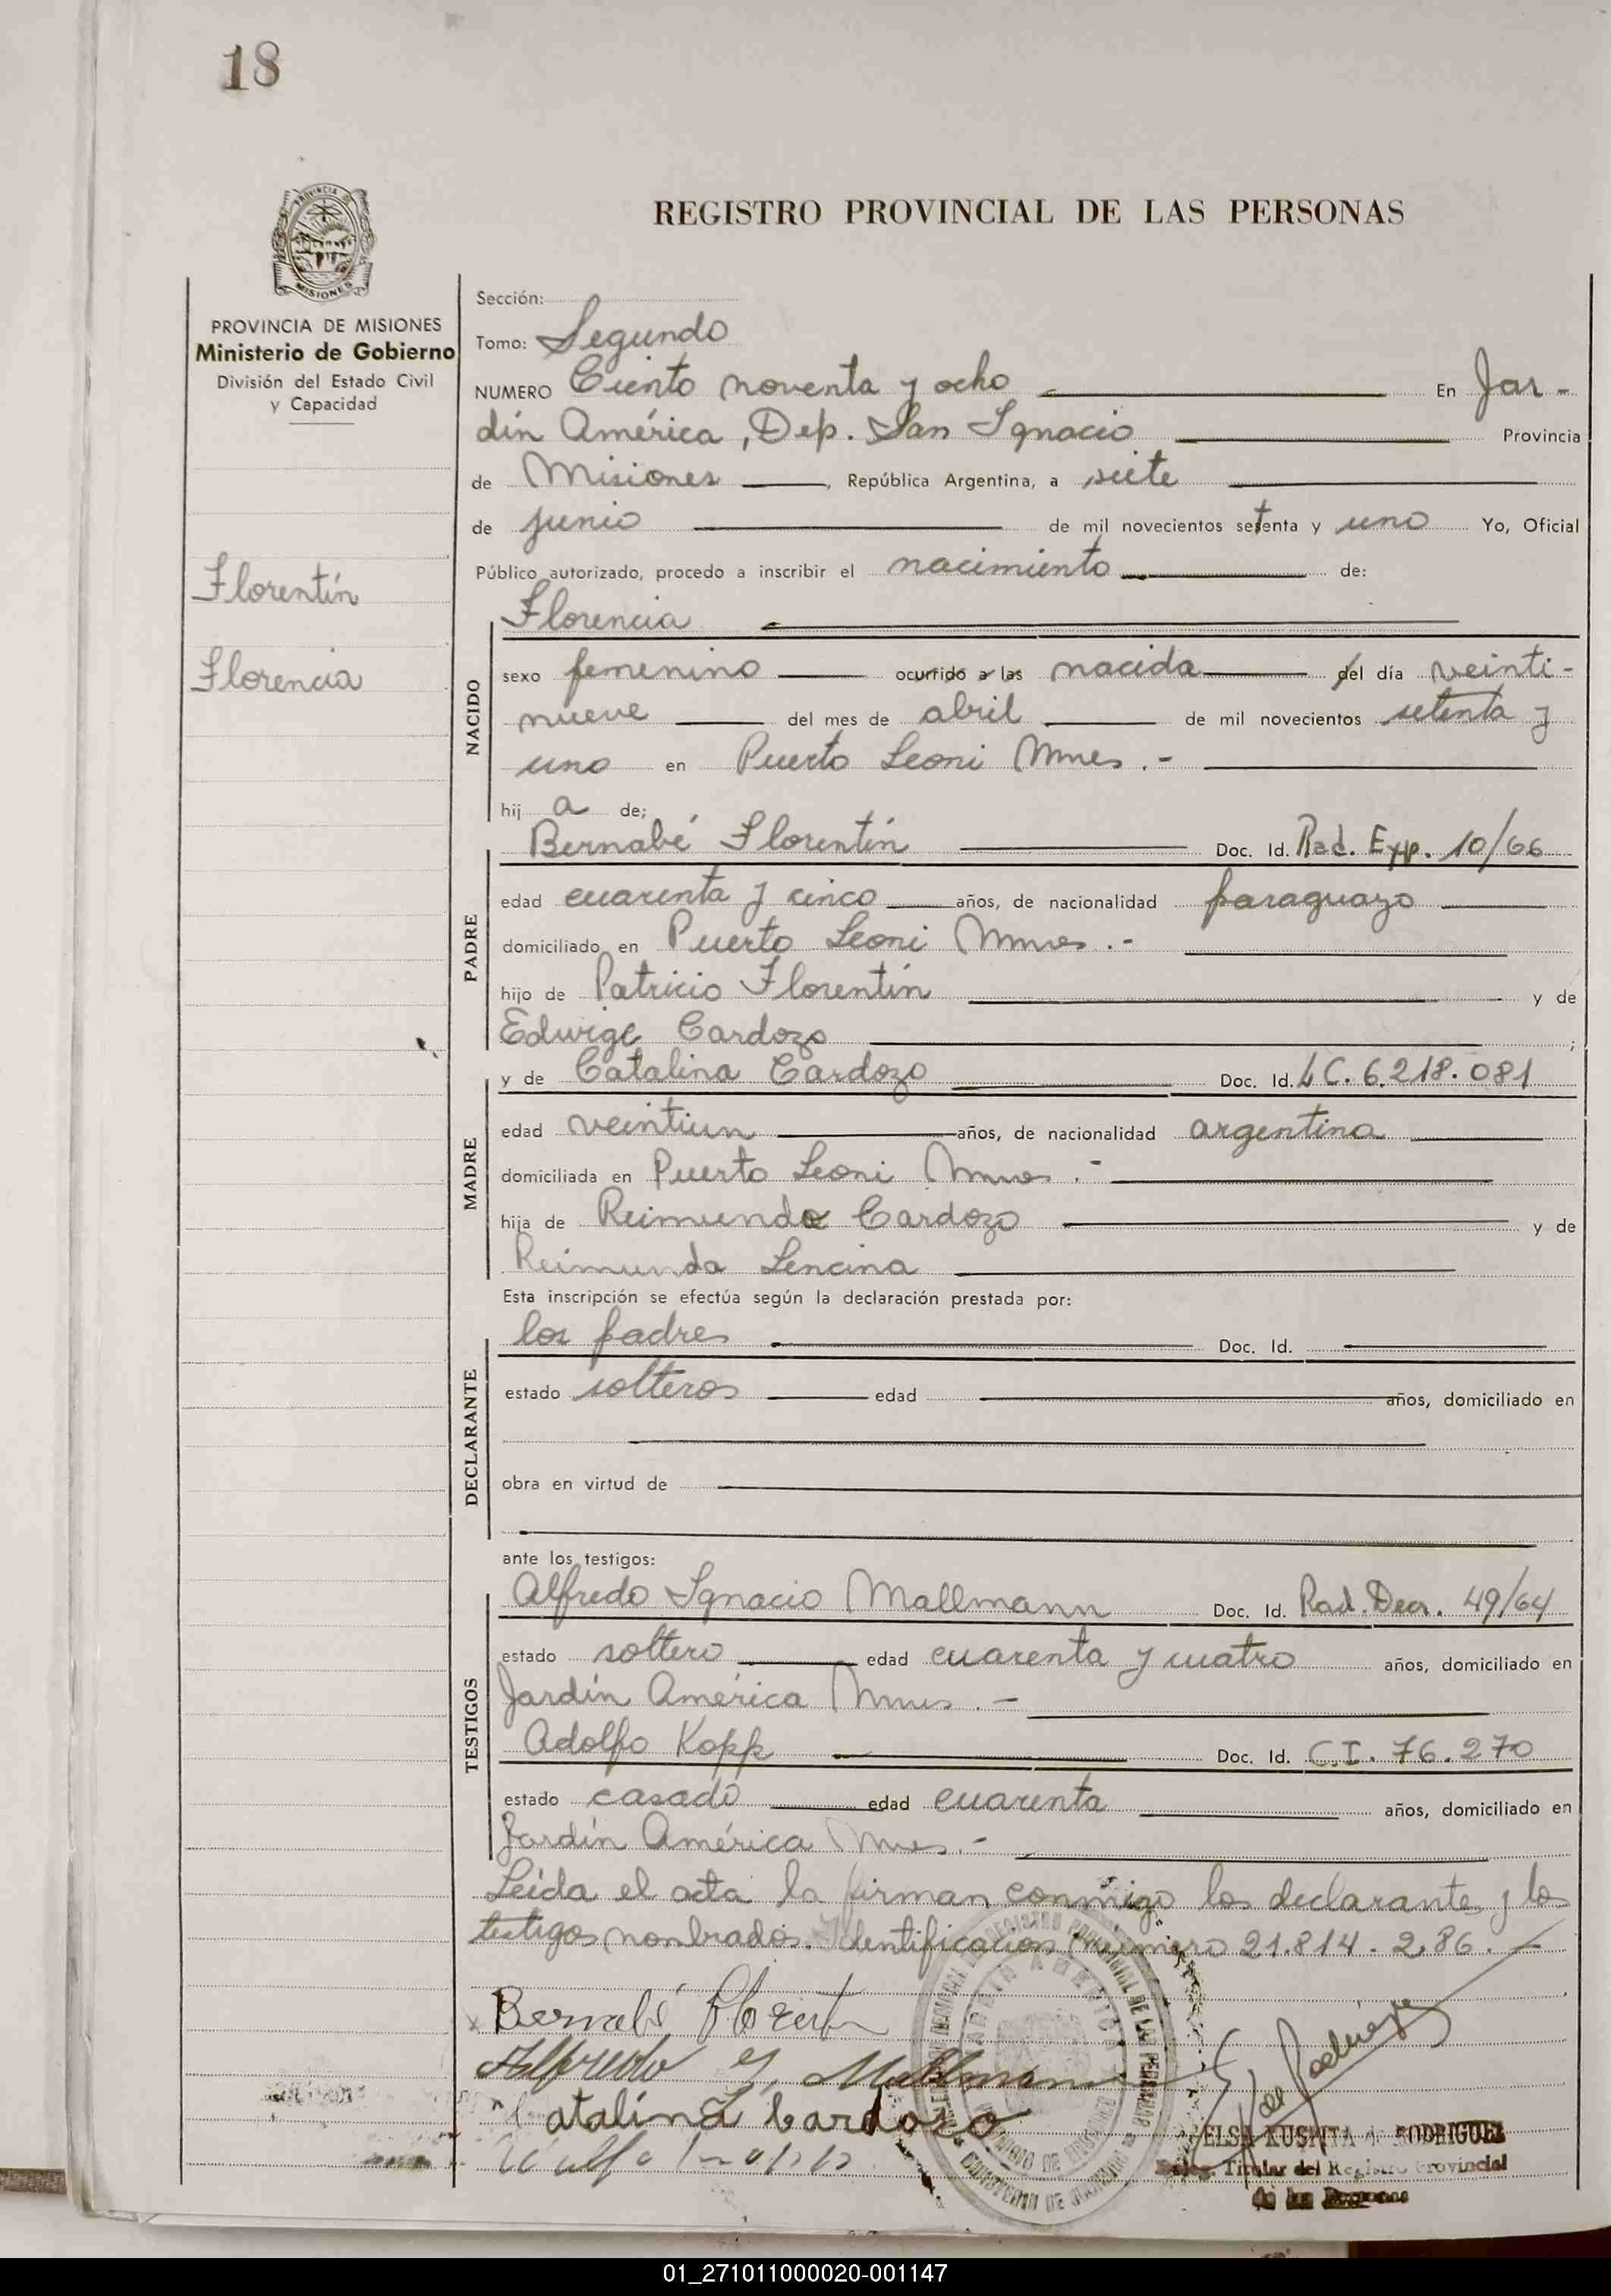 18
REGISTRO PROVINCIAL DE LAS PERSONAS
PROVINCIA
MISIONES
PROVINCIA DE MISIONES
Ministerio de Gobierno
División del Estado Civil
y Capacidad
Florentín
Florencia
Sección:
Tomo: Segundo
NUMERO Ciento noventa y ocho En Jar-
dín América, Dep. San Ignacio Provincia
de Misiones, República Argentina, a siete
de junio de mil novecientos setenta y uno Yo, Oficial
Público autorizado, procedo a inscribir el nacimiento de:
Florencia
NACIDO
sexo femenino ocurrido a las nacida el día veinti-
nueve del mes de abril de mil novecientos setenta y
uno en Puerto Leoni Mnes.-
hij a de;
PADRE
Bernabé Florentín Doc. Id. Rad. Exp. 10/66
edad cuarenta y cinco años, de nacionalidad paraguayo
domiciliado en Puerto Leoni Mnes.-
hijo de Patricio Florentín y de
Edwige Cardozo ;
MADRE
y de Catalina Cardozo Doc. Id. LC. 6.218.081
edad veintiun años, de nacionalidad argentina
domiciliada en Puerto Leoni Mnes.-
hija de Reimundo Cardozo y de
Reimunda Lencina
Esta inscripción se efectúa según la declaración prestada por:
DECLARANTE
los padres Doc. Id.
estado solteros edad años, domiciliado en
obra en virtud de
ante los testigos:
TESTIGOS
Alfredo Ignacio Mallmann Doc. Id. Rad. Decr. 49/64
estado soltero edad cuarenta y cuatro años, domiciliado en
Jardín América Mnes.-
Adolfo Kopp Doc. Id. C.I. 76.270
estado casado edad cuarenta años, domiciliado en
Jardín América Mnes.-
Leída el acta la firman conmigo los declarantes y los
testigos nombrados. Identificacion número 21.814.286.-
Bernabé Florentin
Alfredo Mallmann
Catalina Cardozo
ELSA KUSPITA de RODRIGUEZ
Titular del Registro Provincial
de las Personas
01_271011000020-001147